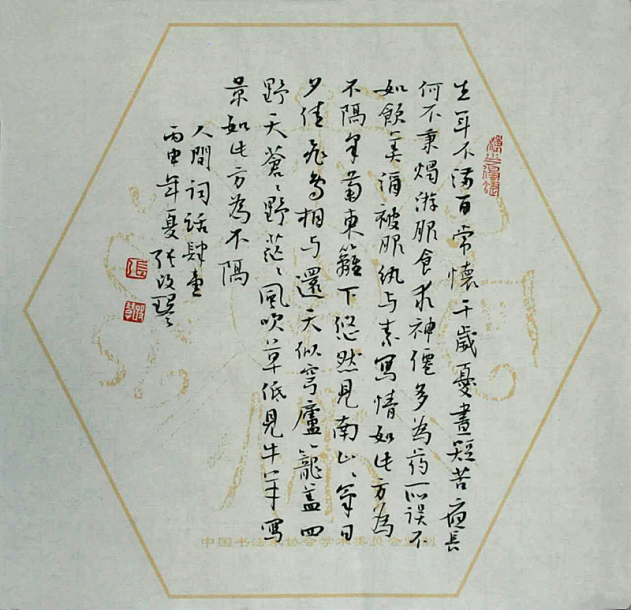 生年不满百常懷千歲憂晝短苦夜長
何不秉燭游服食求神僊多為药所误不
如飲美酒被服紈与素寫情如此方為
不隔采菊東籬下悠然見南山〻氣日
夕佳飛鳥相与還天似穹廬籠盖四
野天蒼〻野茫〻風吹草低見牛羊寫
景如此方為不隔
人間词話肆壹
丙申年夏张政
張
中国书法家协会学术委员会监制